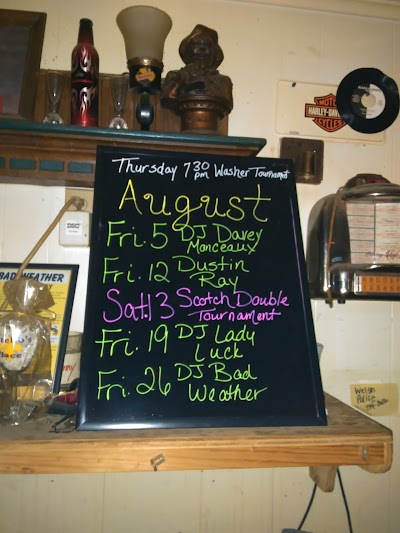 Thursday 7 30 pm Washer Tournament
August
Fri. 5 DJ Davey
Monceaux
Fri. 12 Dustin
Ray
Sat. 13 Scotch Double
Tournament
Fri. 19 DJ Lady
Luck
Fri. 26 DJ Bad
Weather
BAD WEATHER
MOTOR
HARLEY-DAVIDSON
CYCLES
Place
Welsh
Police